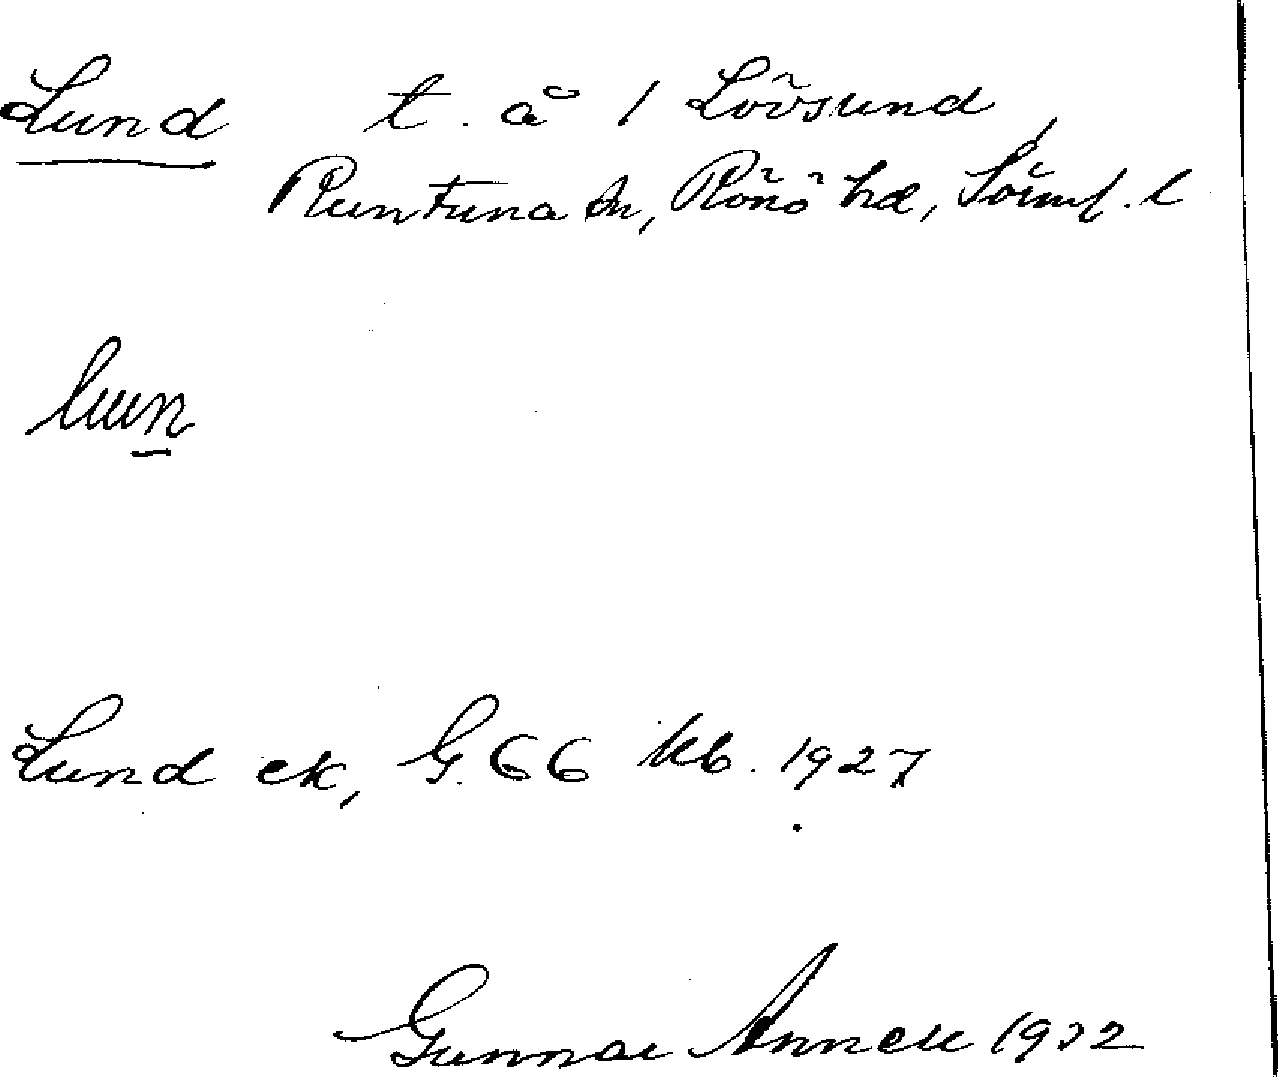 Lund t. å 1 Lövsund,
Runtuna sn, Rönö hd, Sörml. l
luun
Lund ek, G. 66 kb. 1927
Gunnar Annell 1932